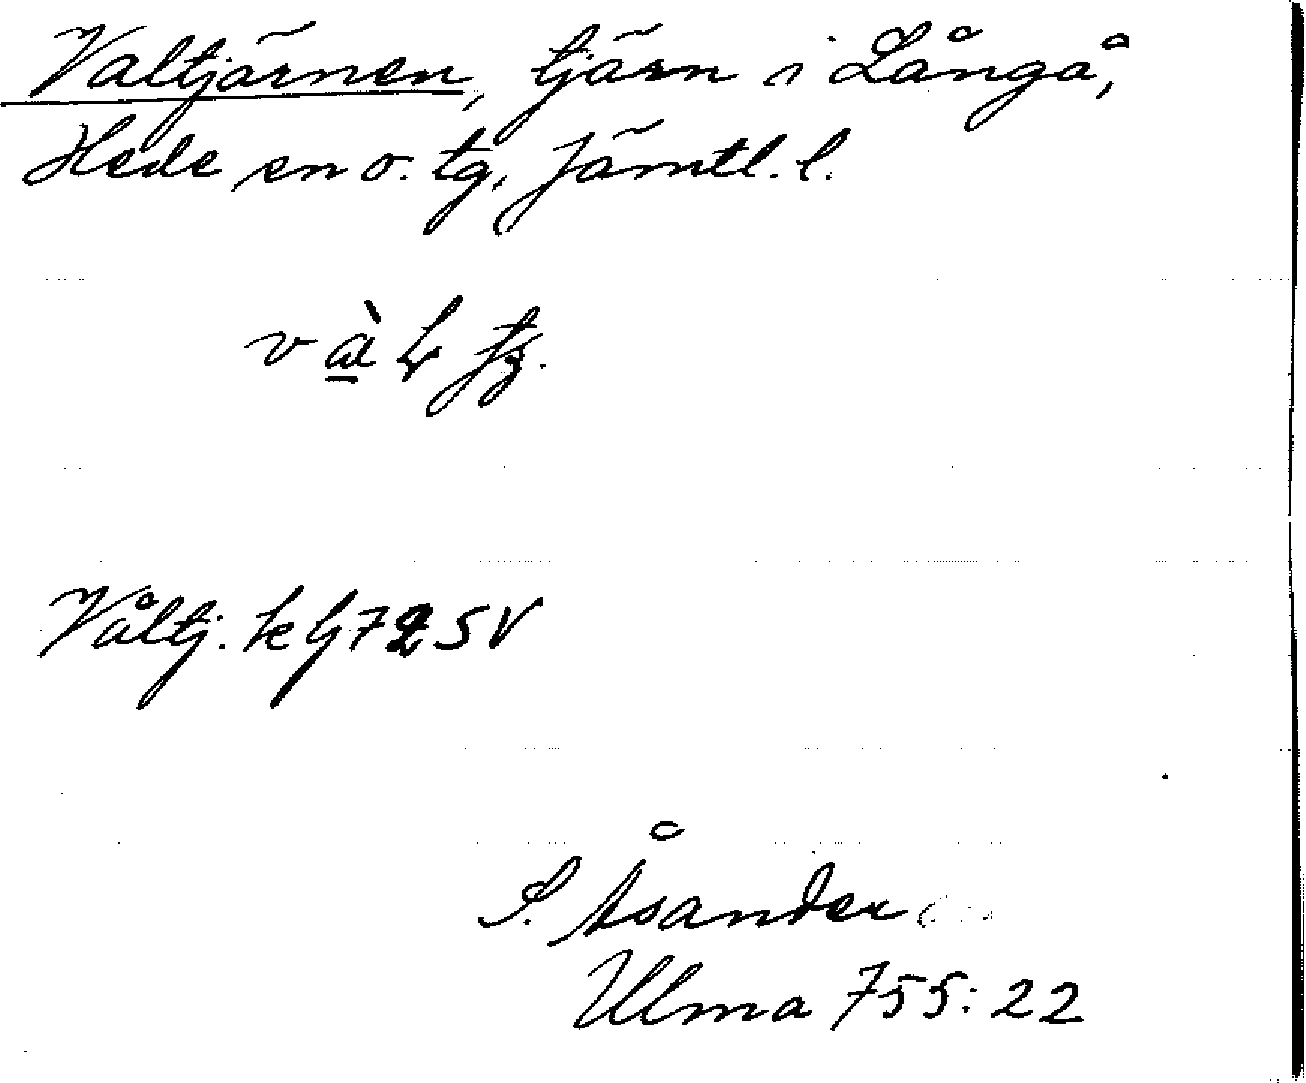 Valtjärnen, tjärn i Långå,
Hede sn o. tg, Jämtl. l.
Våltj. k G 72 SV
S. Åsander
Ulma 755:22